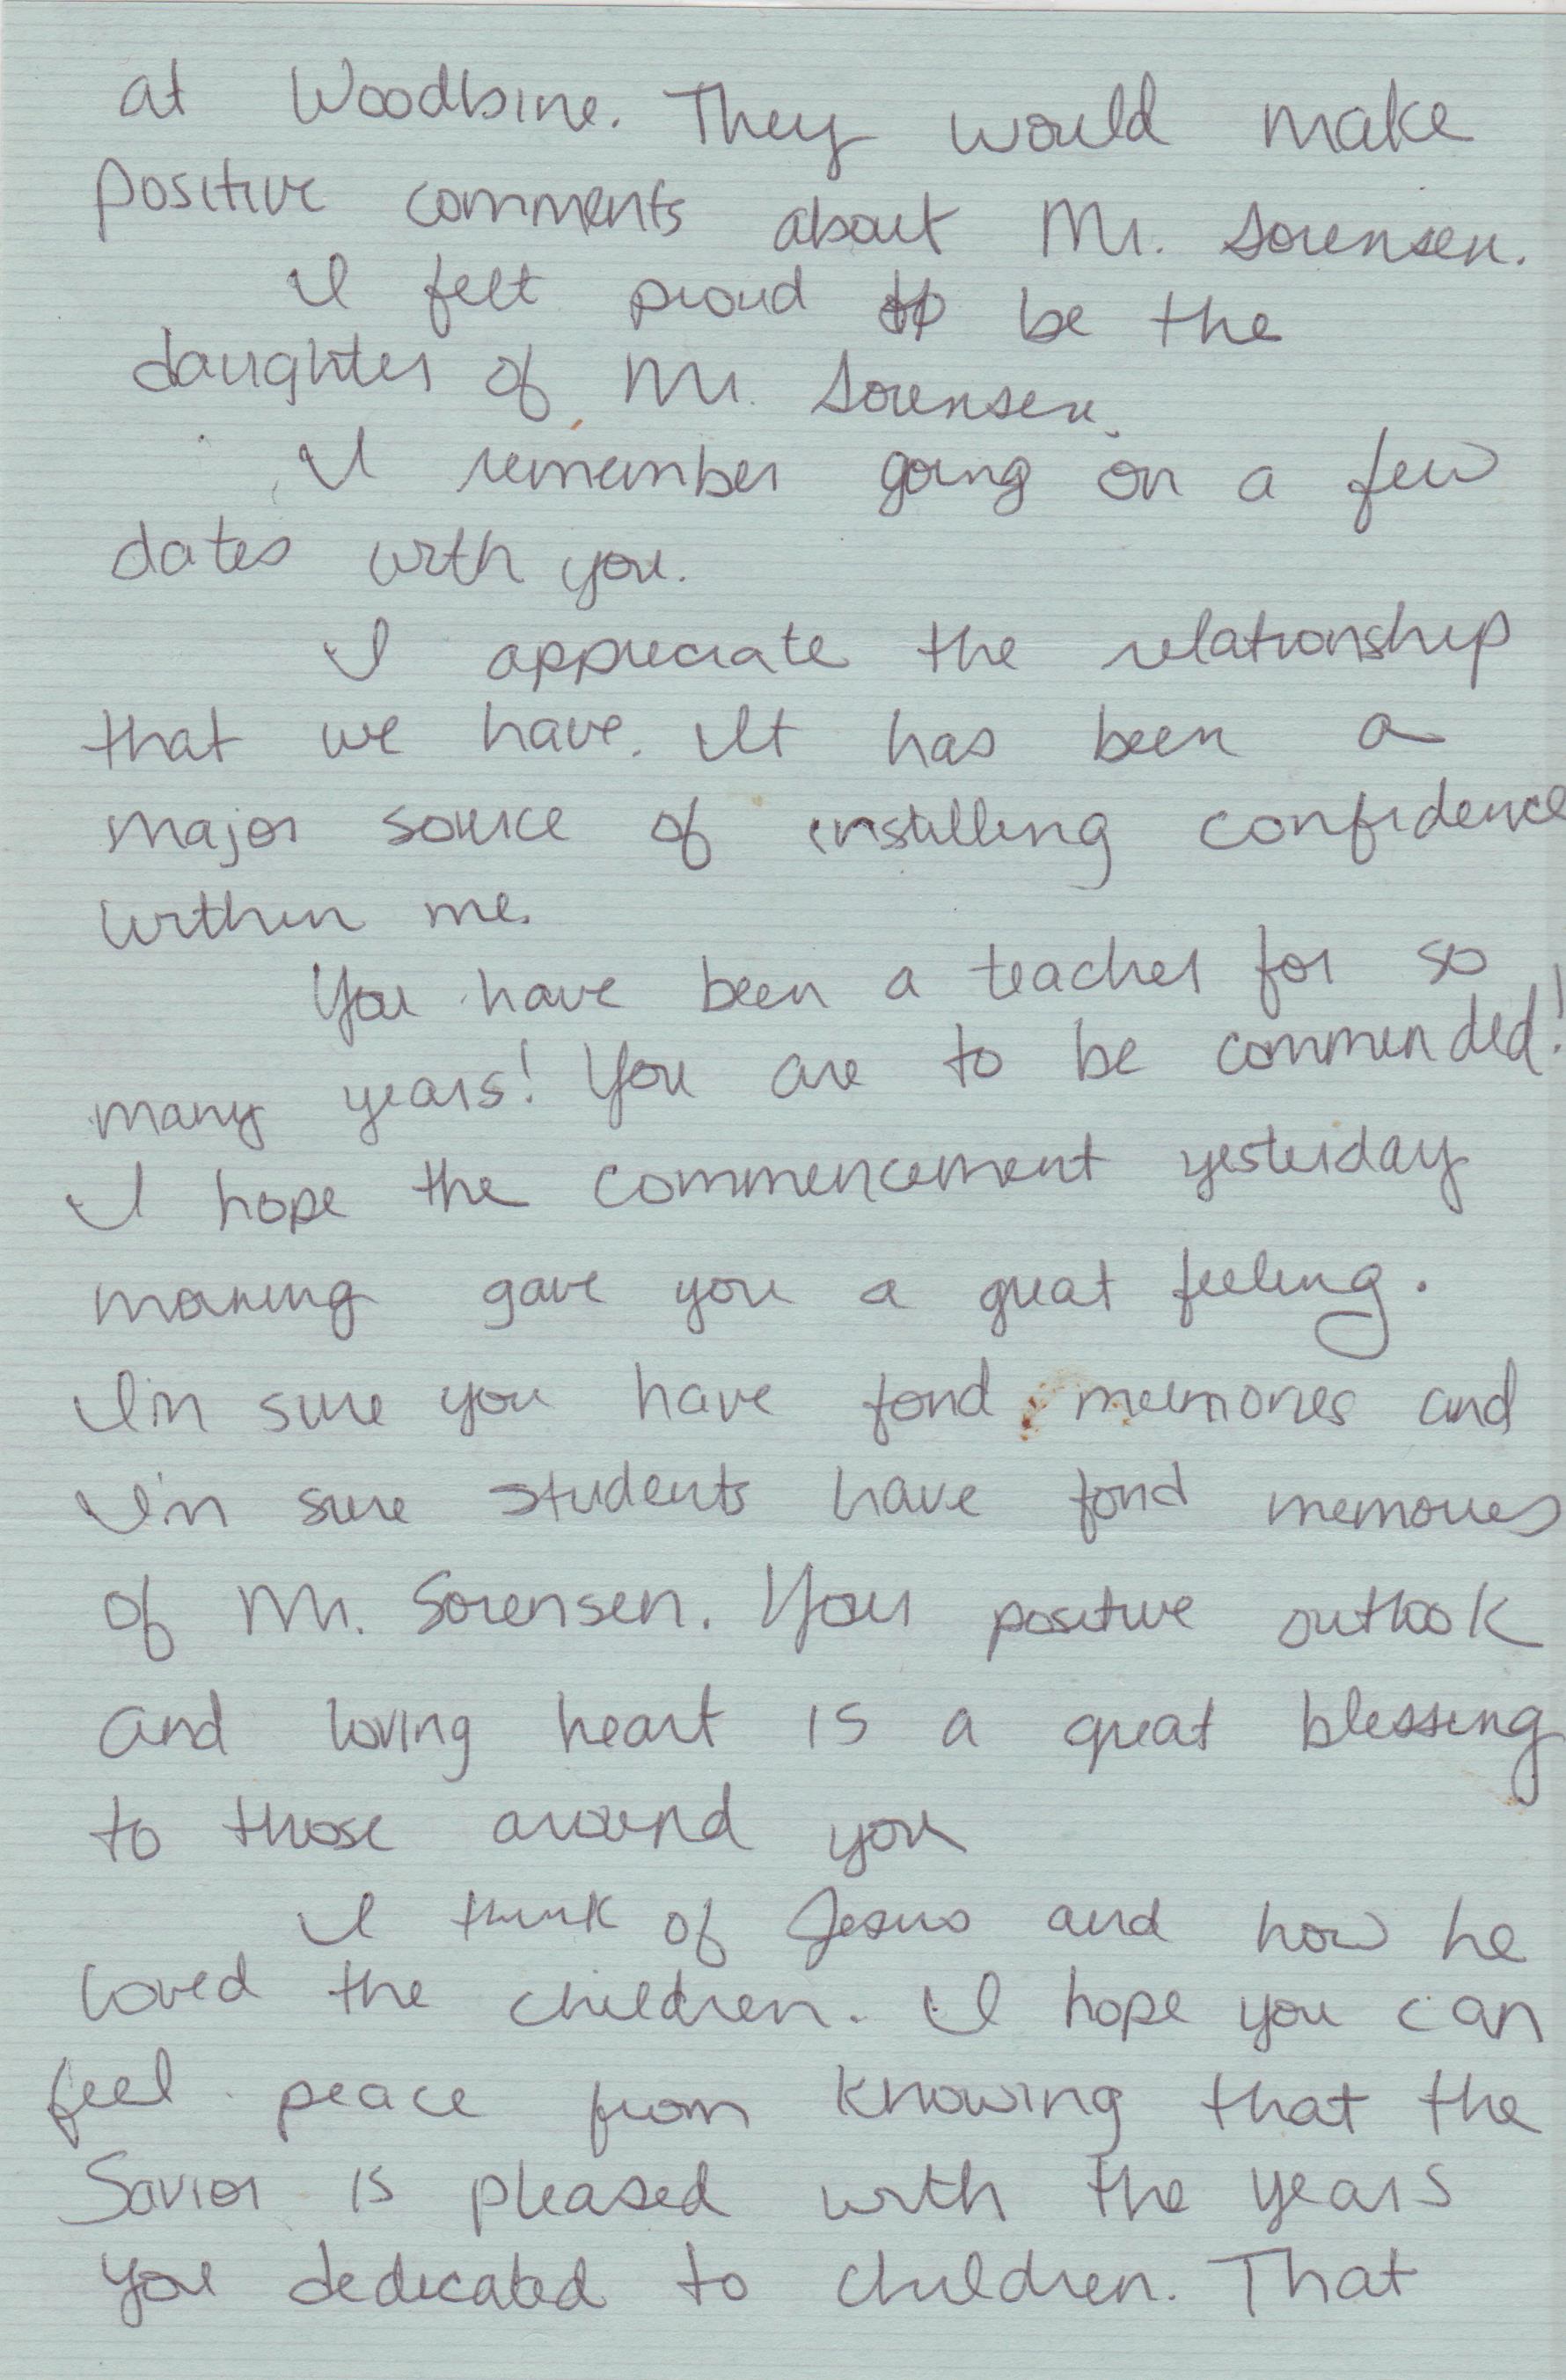 at Woodbine. They would make
positive comments about Mr. Sorensen.
I felt proud to be the
daughter of Mr. Sorensen.
I remember going on a few
dates with you.
I appreciate the relationship
that we have. It has been a
major source of instilling confidence
within me.
You have been a teacher for so
many years! You are to be commended!
I hope the commencement yesterday
morning gave you a great feeling.
I'm sure you have fond memories and
I'm sure students have fond memories
of Mr. Sorensen. Your positive outlook
and loving heart is a great blessing
to those around you
I think of Jesus and how he
loved the children. I hope you can
feel peace from knowing that the
Savior is pleased with the years
you dedicated to children. That